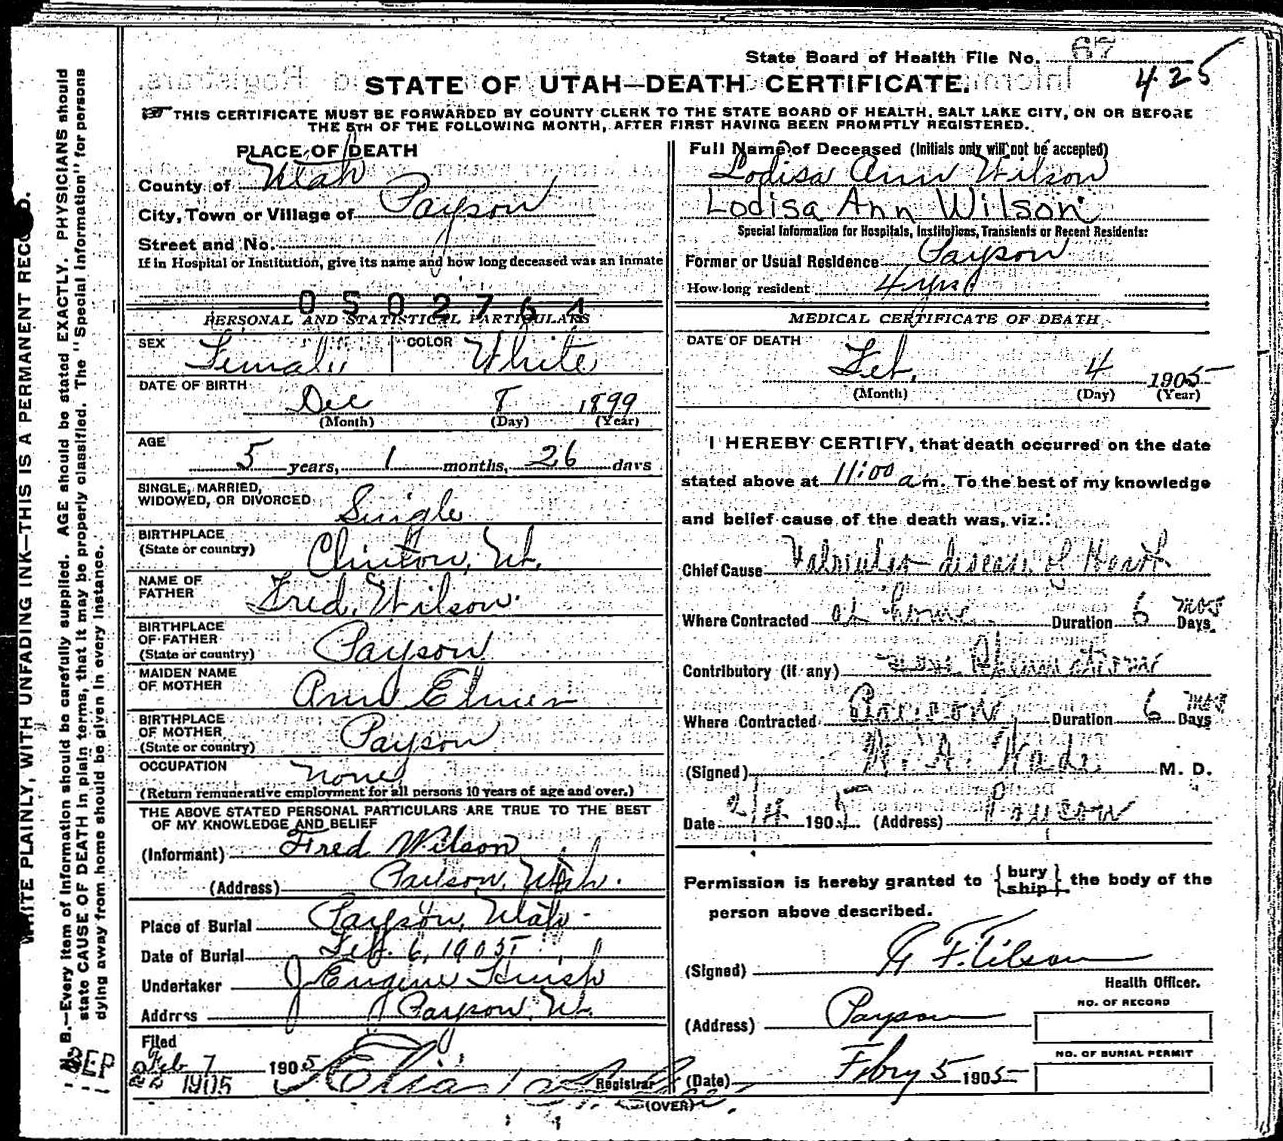 State Board of Health File No. 67
425
STATE OF UTAH—DEATH CERTIFICATE.
THIS CERTIFICATE MUST BE FORWARDED BY COUNTY CLERK TO THE STATE BOARD OF HEALTH, SALT LAKE CITY, ON OR BEFORE
THE 5TH OF THE FOLLOWING MONTH, AFTER FIRST HAVING BEEN PROMPTLY REGISTERED.
PLACE OF DEATH
County of Utah
City, Town or Village of Payson
Street and No.
If in Hospital or Institution, give its name and how long deceased was an inmate
0502764
PERSONAL AND STATISTICAL PARTICULARS
SEX Female COLOR White
DATE OF BIRTH
Dec 8 1899
(Month) (Day) (Year)
AGE
5 years, 1 months, 26 days
SINGLE, MARRIED,
WIDOWED, OR DIVORCED Single
BIRTHPLACE
(State or country) Clinton, Ut.
NAME OF
FATHER Fred Wilson
BIRTHPLACE
OF FATHER
(State or country) Payson
MAIDEN NAME
OF MOTHER Ann Elmer
BIRTHPLACE
OF MOTHER
(State or country) Payson
OCCUPATION none
(Return remunerative employment for all persons 10 years of age and over.)
THE ABOVE STATED PERSONAL PARTICULARS ARE TRUE TO THE BEST
OF MY KNOWLEDGE AND BELIEF
(Informant) Fred Wilson
(Address) Payson, Utah.
Place of Burial Payson, Utah
Date of Burial Feb. 6, 1905
Undertaker J Eugene Huish
Address Payson, Ut.
Filed
Feb 7 1905
1905 Registrar
(OVER)
Full Name of Deceased (Initials only will not be accepted)
Lodisa Ann Wilson
Lodisa Ann Wilson
Special Information for Hospitals, Institutions, Transients or Recent Residents:
Former or Usual Residence Payson
How long resident 4 yrs
MEDICAL CERTIFICATE OF DEATH
DATE OF DEATH
Feb. 4 1905
(Month) (Day) (Year)
I HEREBY CERTIFY, that death occurred on the date
stated above at 11:00 a m. To the best of my knowledge
and belief cause of the death was, viz.:
Chief Cause Valvular disease of Heart
Where Contracted at home Duration 6 mos Days.
Contributory (if any) Rheumatism
Where Contracted Payson Duration 6 mos Days
(Signed) Wade M. D.
Date 2/4 1905 (Address) Payson
Permission is hereby granted to {bury ship} the body of the
person above described.
(Signed)
Health Officer.
(Address) Payson
NO. OF RECORD
NO. OF BURIAL PERMIT
(Date) Febry 5 1905
WRITE PLAINLY, WITH UNFADING INK—THIS IS A PERMANENT RECORD.
N. B.—Every item of information should be carefully supplied. AGE should be stated EXACTLY. PHYSICIANS should
state CAUSE OF DEATH in plain terms, that it may be properly classified. The "Special Information" for persons
dying away from home should be given in every instance.